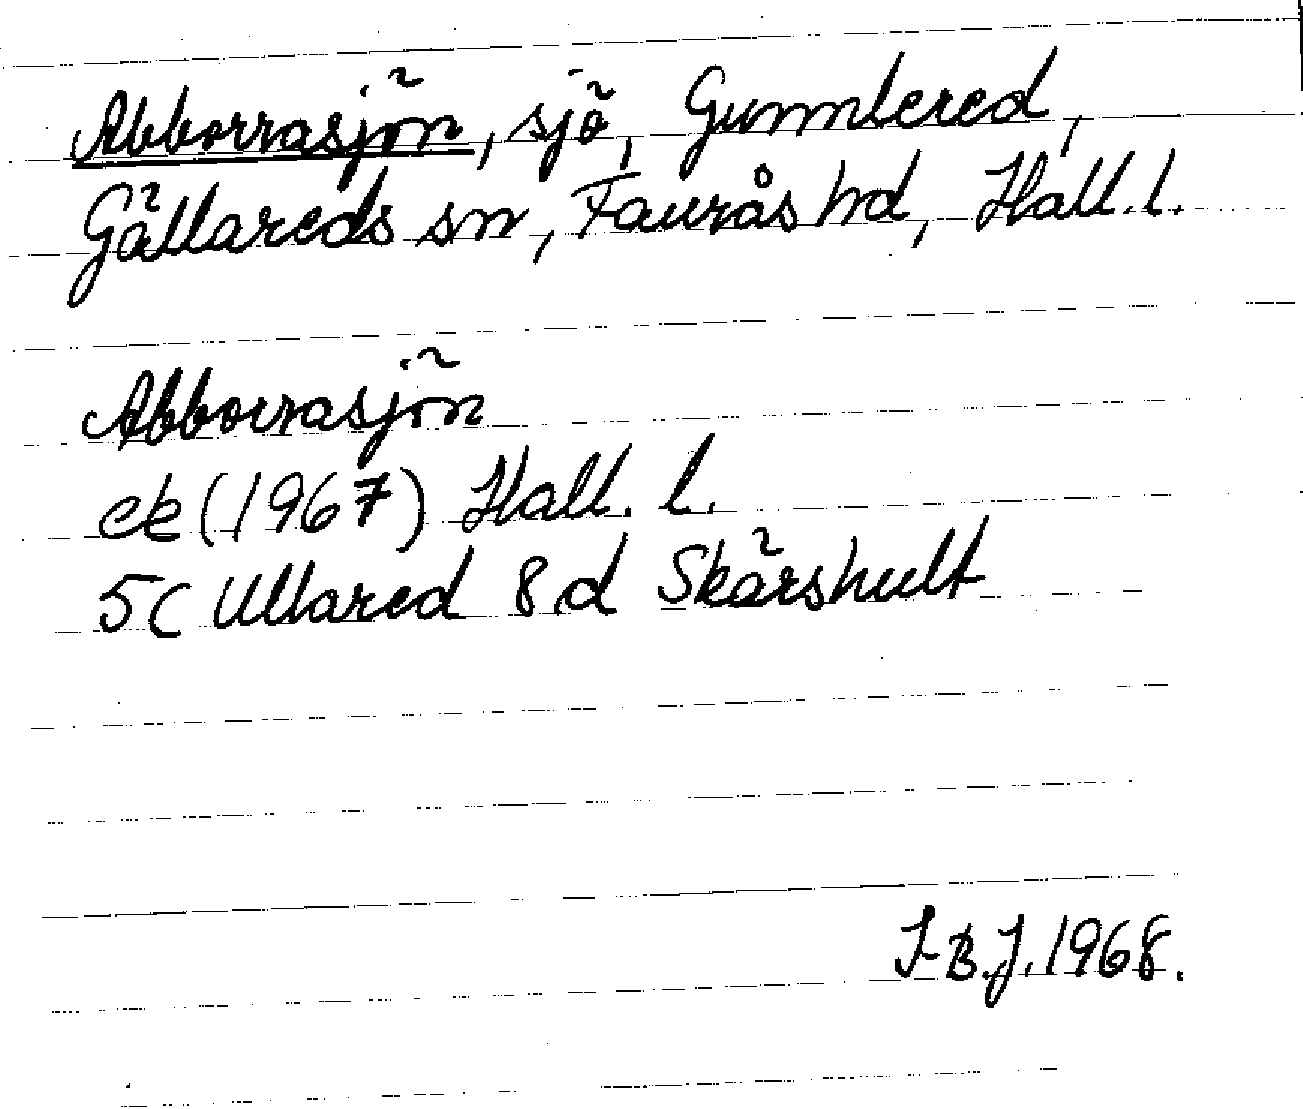 Abborrasjön, sjö, Gunnlered,
Gällareds sn, Faurås hd, Hall. l.
Abborrasjön
ek (1967) Hall. l.
5C Ullared 8d Skärshult
I-B.J. 1968.